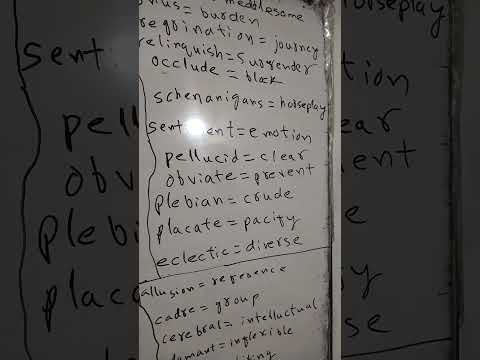 meddlesome
= burden
regrination = journey
relinquish = surrender
occlude = block
schenanigans = horseplay
sentiment = emotion
pellucid = clear
obviate = prevent
plebian = crude
placate = pacify
eclectic = diverse
allusion = reference
cadre = group
cerebral = intelluctual
damant = inflexible